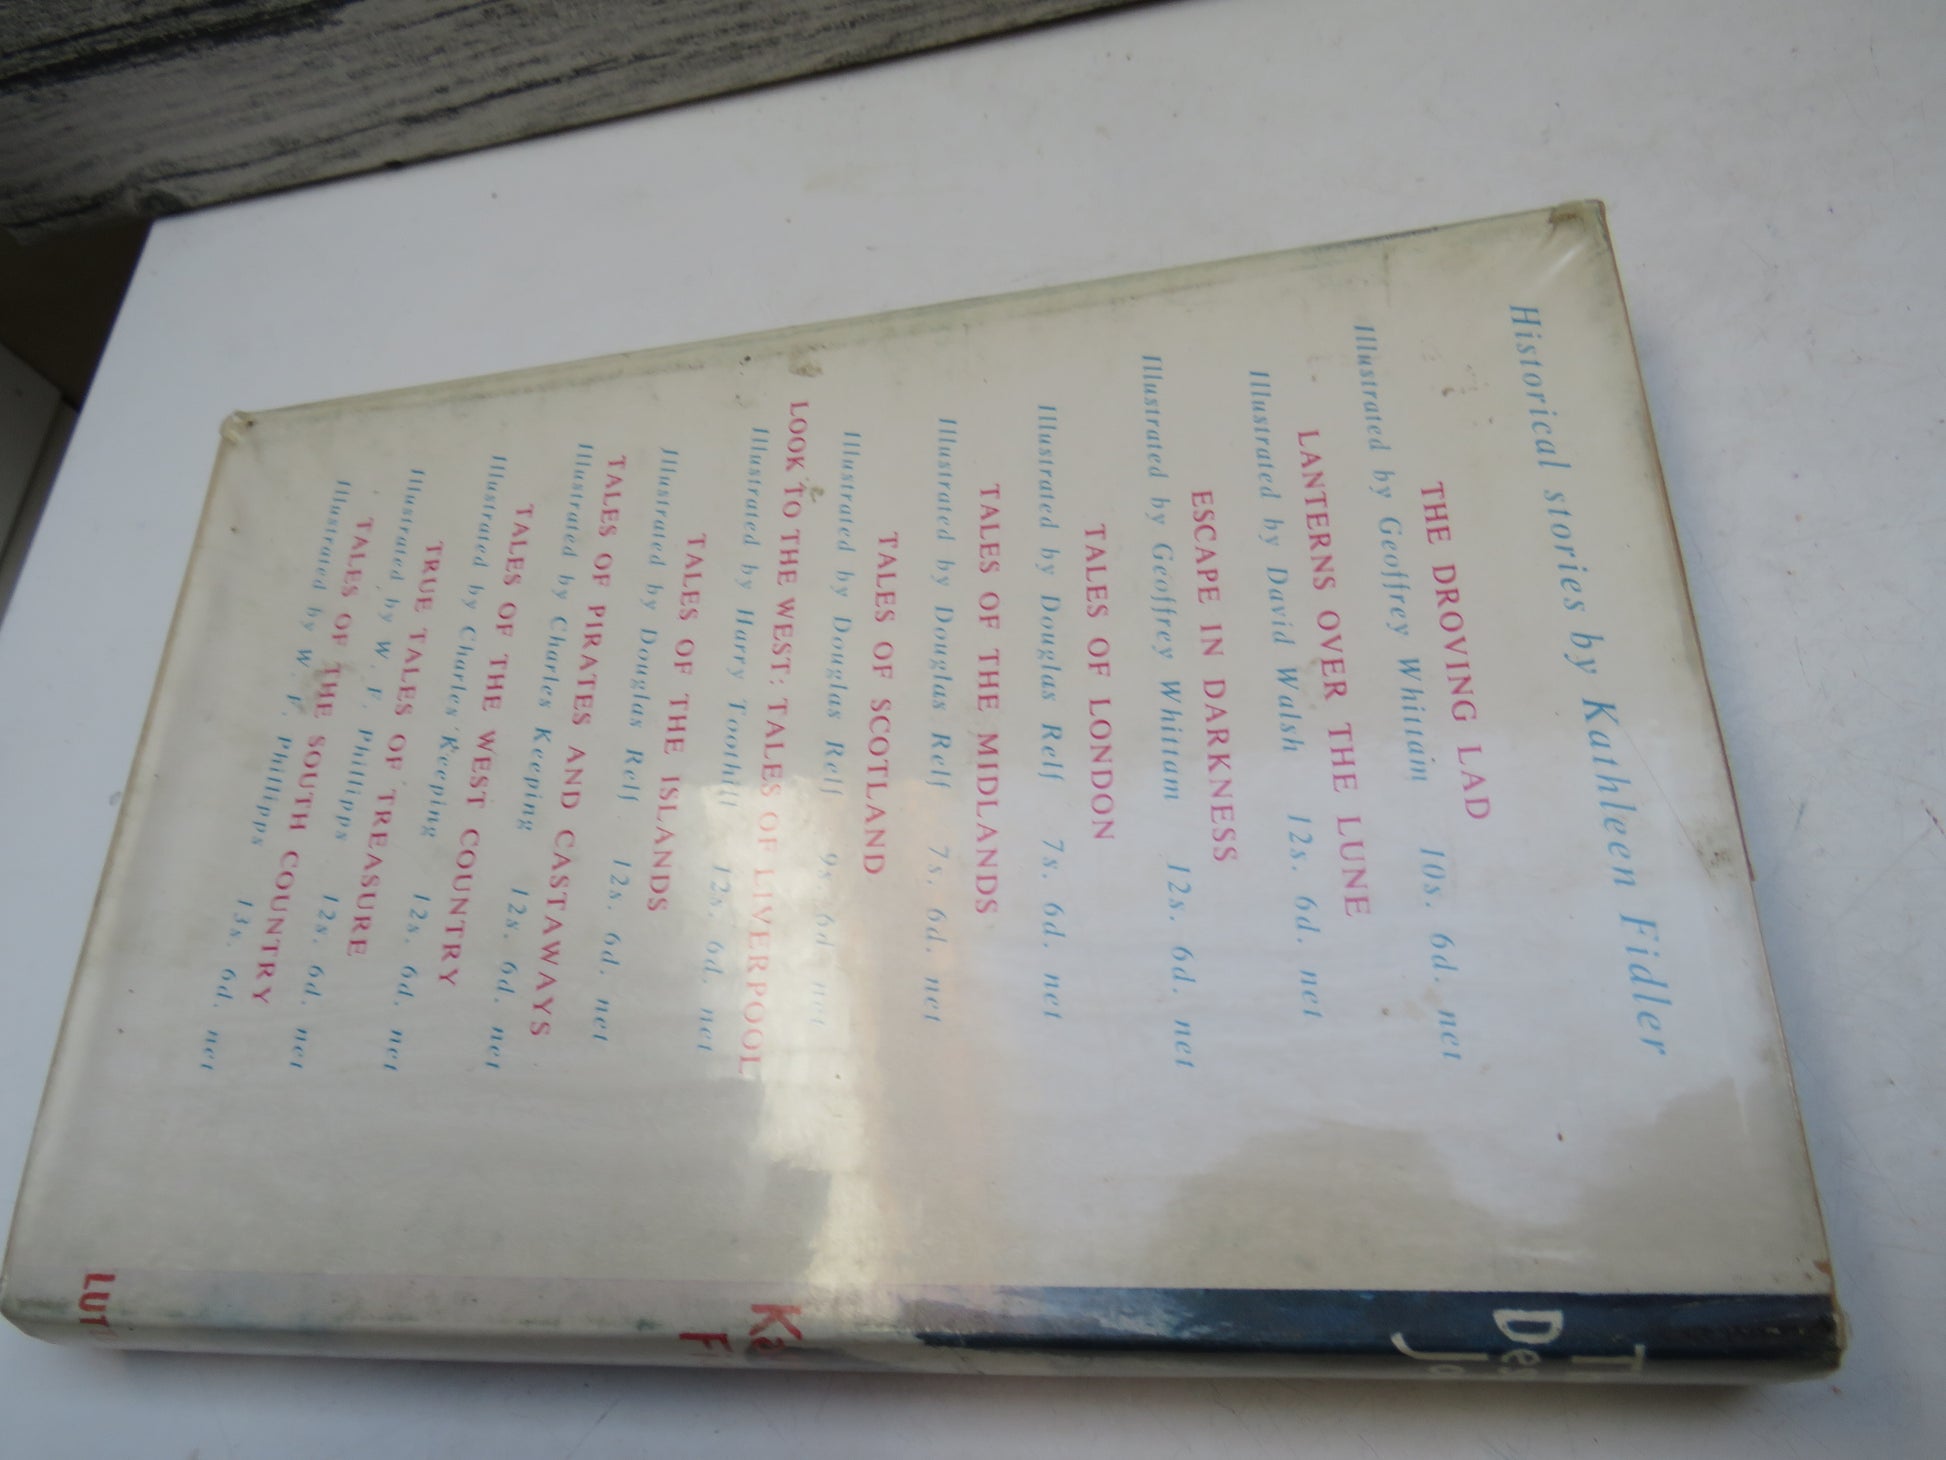 Historical stories by Kathleen Fidler
THE DROVING LAD
Illustrated by Geoffrey Whittam 10s. 6d. net
LANTERNS OVER THE LUNE
Illustrated by David Walsh 12s. 6d. net
ESCAPE IN DARKNESS
Illustrated by Geoffrey Whittam 12s. 6d. net
TALES OF LONDON
Illustrated by Douglas Relf 7s. 6d. net
TALES OF THE MIDLANDS
Illustrated by Douglas Relf 7s. 6d. net
TALES OF SCOTLAND
Illustrated by Douglas Relf 9s. 6d. net
LOOK TO THE WEST: TALES OF LIVERPOOL
Illustrated by Harry Toothill 12s. 6d. net
TALES OF THE ISLANDS
Illustrated by Douglas Relf 12s. 6d. net
TALES OF PIRATES AND CASTAWAYS
Illustrated by Charles Keeping 12s. 6d. net
TALES OF THE WEST COUNTRY
Illustrated by Charles Keeping 12s. 6d. net
TRUE TALES OF TREASURE
Illustrated by W. F. Phillipps 12s. 6d. net
TALES OF THE SOUTH COUNTRY
Illustrated by W. F. Phillipps 13s. 6d. net
Des